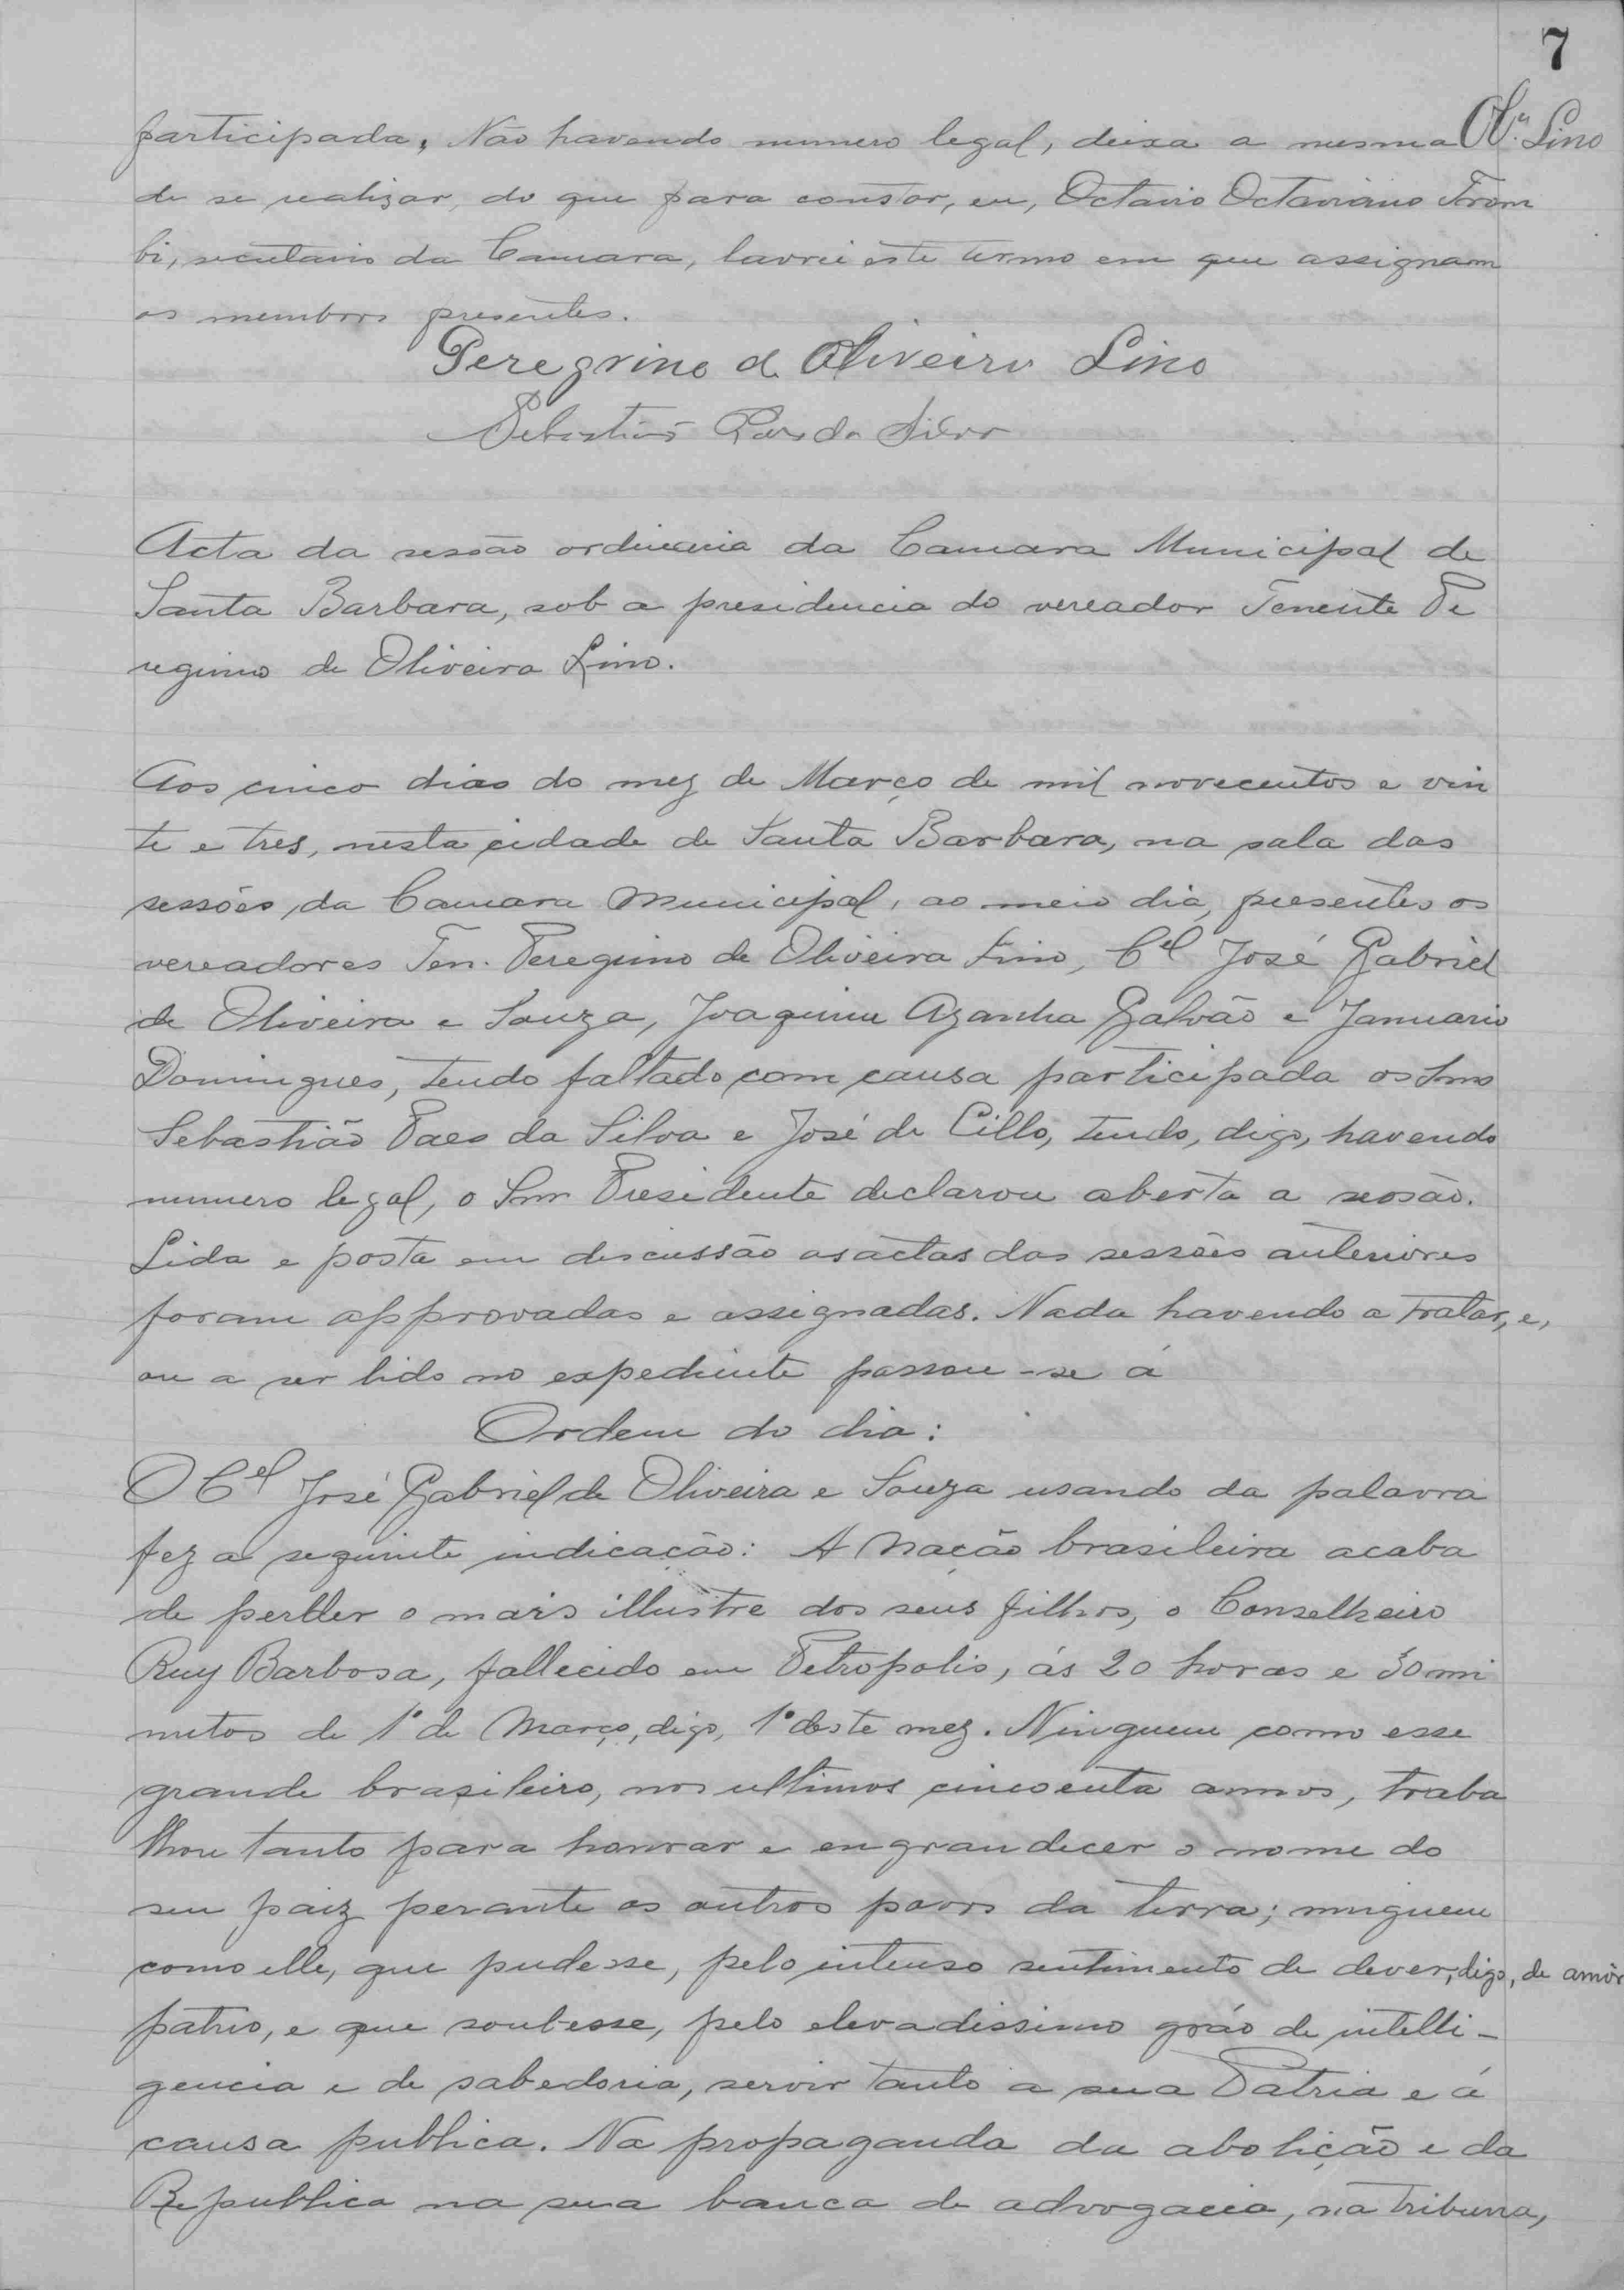 7
participada. Não havendo numero legal, deixa a mesma Olª. Lino
de se realizar, do que para constar, eu, Octavio Octaviano Trom
bi, secretario da Camara, lavrei este termo em que assignam
os membros presentes.
Peregrino de Oliveira Lino
Sebastião Paes da Silva
Acta da sessão ordinaria da Camara Municipal de
Santa Barbara, sob a presidencia do vereador Tenente Pe
regrino de Oliveira Lino.
Aos cinco dias do mez de Março de mil novecentos e vin
te e tres, nesta cidade de Santa Barbara, na sala das
sessões da Camara Municipal, ao meio dia, presentes os
vereadores Ten. Peregrino de Oliveira Lino, Cel José Gabriel
de Oliveira e Souza, Joaquim Azanha Galvão e Januario
Domingues, tendo faltado com causa participada os Snrs
Sebastião Paes da Silva e José de Cillo, tendo, digo, havendo
numero legal, o Snr Presidente declarou aberta a sessão.
Lida e posta em discussão as actas das sessões anteriores
foram approvadas e assignadas. Nada havendo a tratar, e,
ou a ser lido no expediente passou-se á
Ordem do dia:
O Cel José Gabriel de Oliveira e Souza usando da palavra
fez a seguinte indicação: A Nação brasileira acaba
de perder o mais illustre dos seus filhos, o Conselheiro
Ruy Barbosa, fallecido em Petropolis, ás 20 horas e 30 mi
nutos de 1º de Março, digo, 1º deste mez. Ninguem como esse
grande brasileiro, nos ultimos cincoenta annos, traba
lhou tanto para honrar e engrandecer o nome do
seu paiz perante os outros povos da terra; ninguem
como elle, que pudesse, pelo intenso sentimento de dever, digo, de amôr
patrio, e que soubesse, pelo elevadissimo gráo de intelli-
gencia e de sabedoria, servir tanto a sua Patria e á
causa publica. Na propaganda da abolição e da
Republica na sua banca de advogacia, na tribuna,